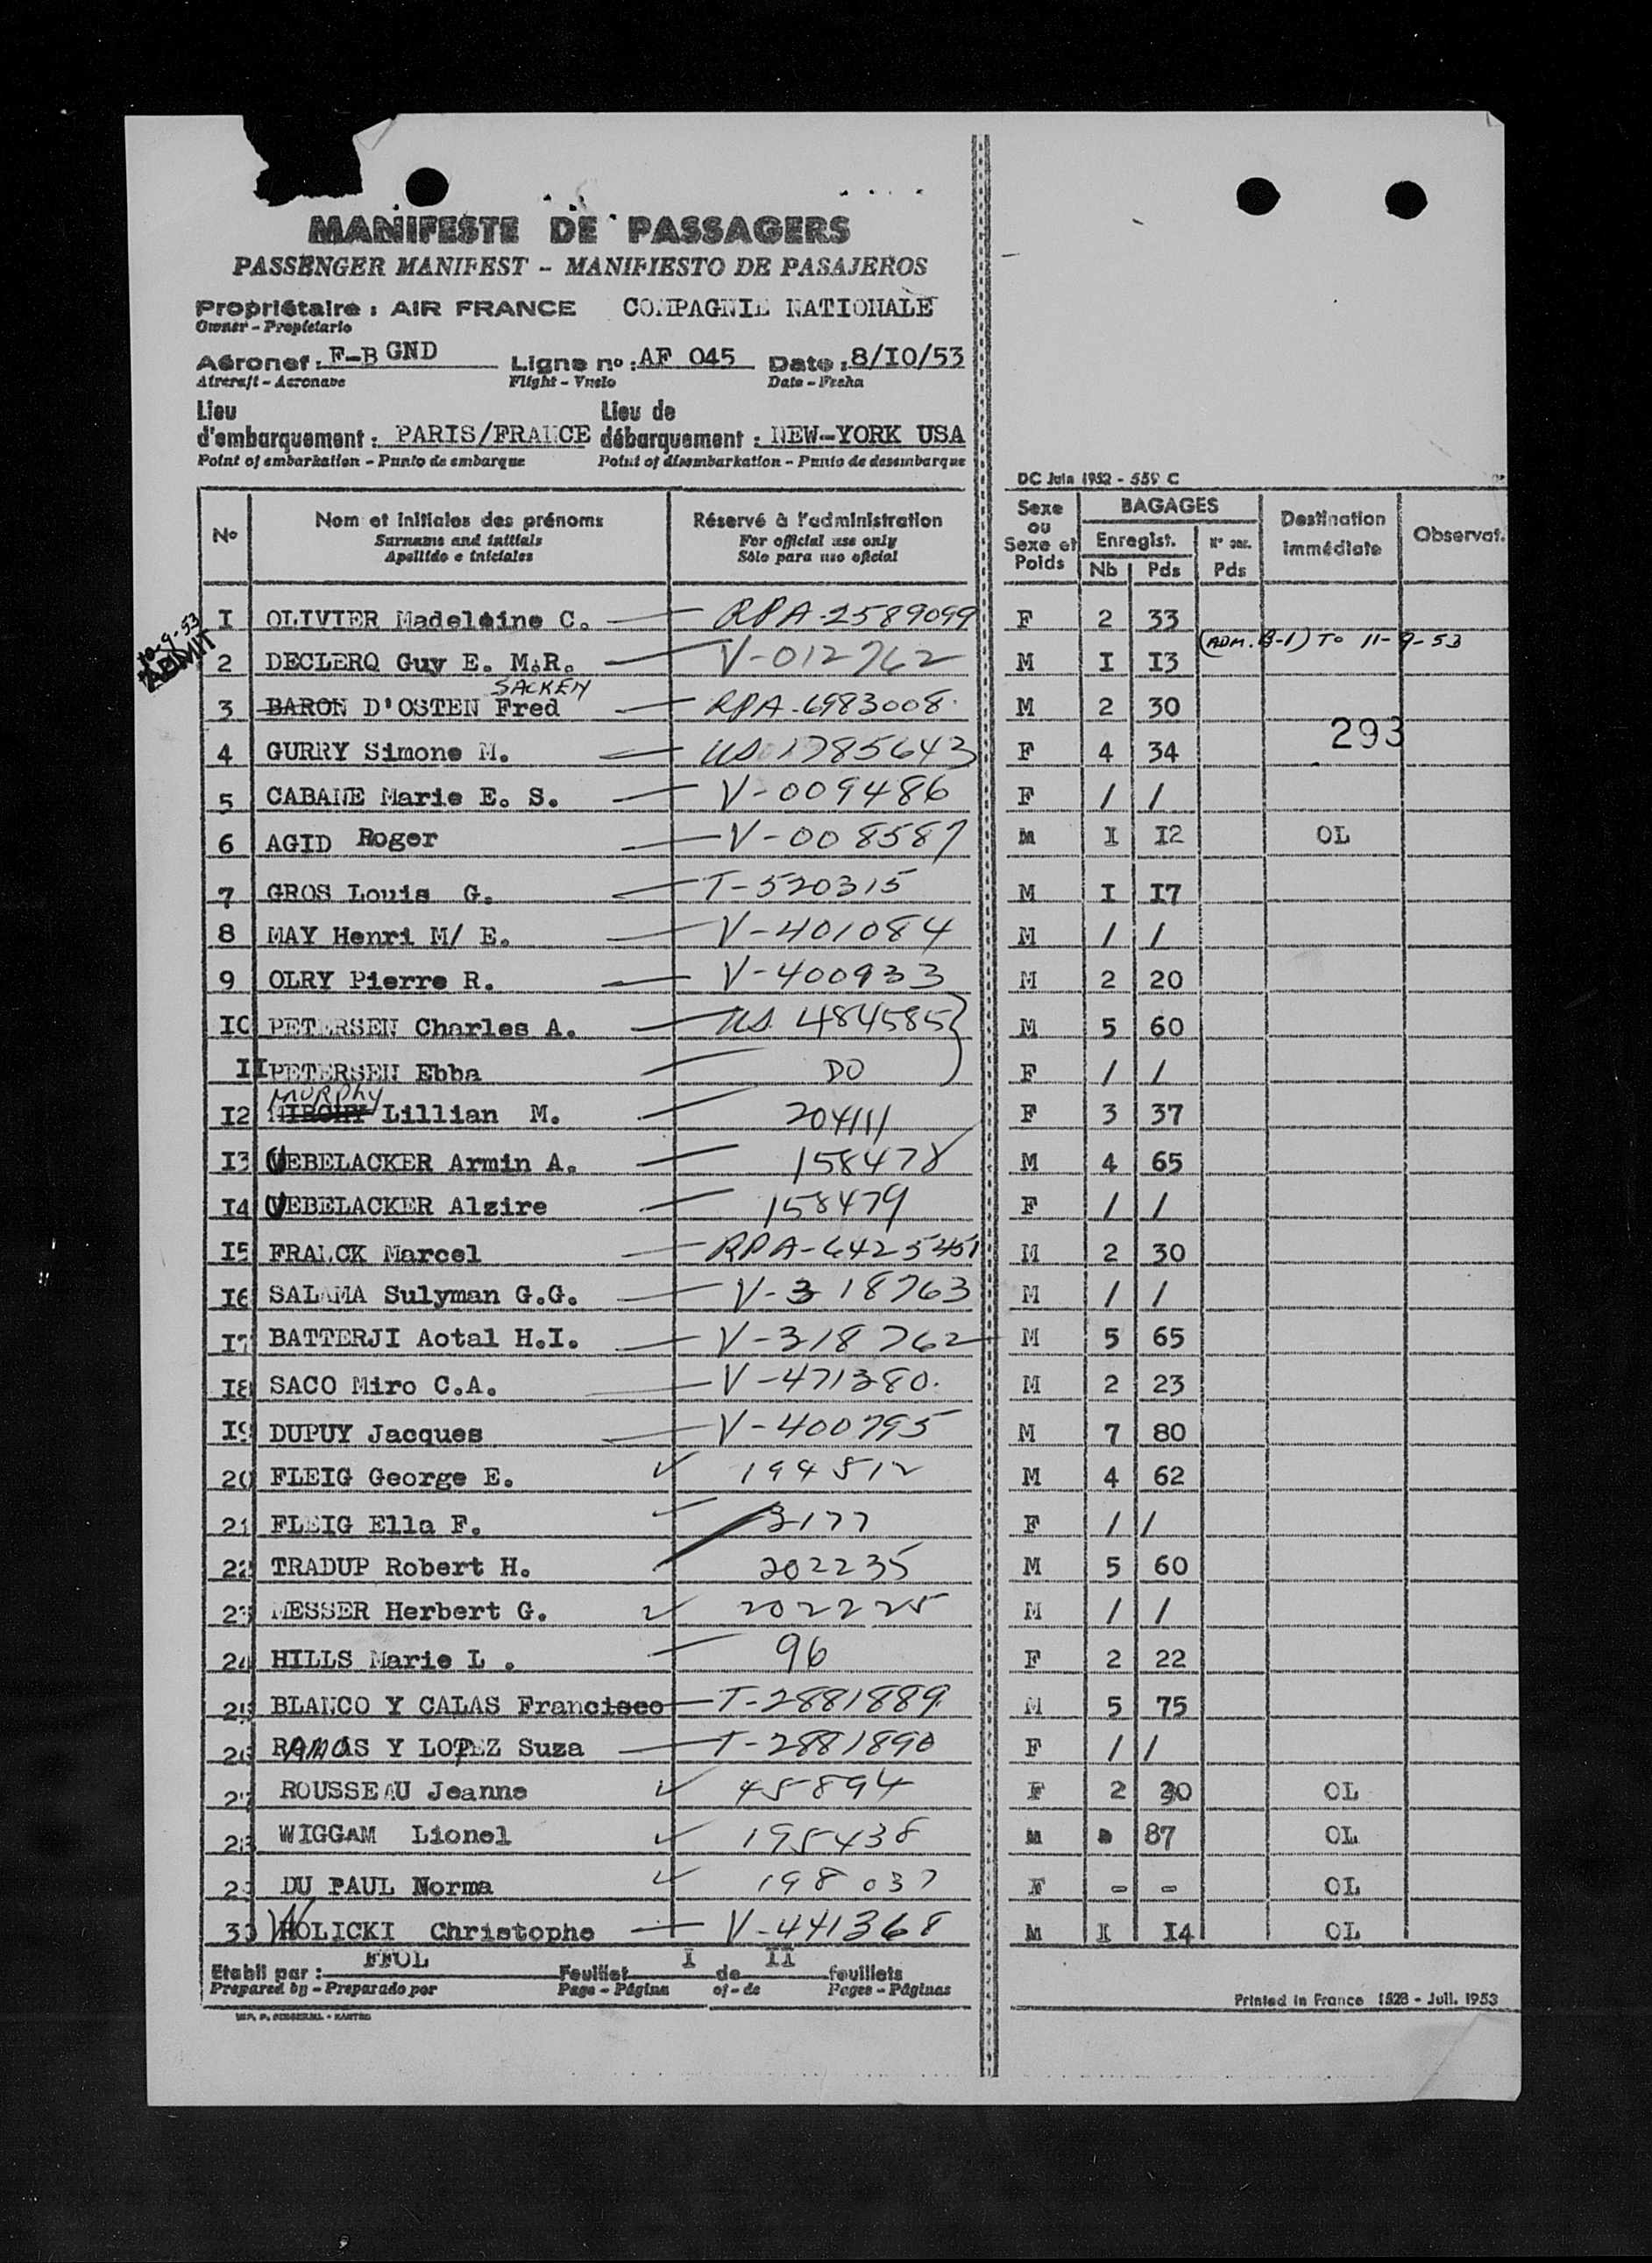 MANIFESTE DE PASSAGERS
PASSENGER MANIFEST - MANIFIESTO DE PASAJEROS
Propriétaire : AIR FRANCE COMPAGNIE NATIONALE
Owner - Propietario
Aéronef : F-B GND Ligne nº : AF 045 Date : 8/I0/53
Aircraft - Aeronave Flight - Vuelo Date - Fecha
Lieu d'embarquement : PARIS/FRANCE Lieu de débarquement : NEW-YORK USA
Point of embarkation - Punto de embarque Point of disembarkation - Punto de desembarque
DC Juin 1952 - 559 C
Nº Nom et initiales des prénoms Réservé à l'administration Sexe ou Sexe et Poids BAGAGES Destination immédiate Observat.
Surname and initials For official use only Enregist.
Apellido e iniciales Sólo para uso oficial Nb Pds Pds
I OLIVIER Madeleine C. RPA-2589099 F 2 33
10-9-53 ADMIT
(ADM. B-1) TO 11-9-53
2 DECLERQ Guy E. M.R. V-012762 M I I3
SACKEN
3 BARON D'OSTEN Fred RPA-6983008 M 2 30
293
4 GURRY Simone M. US 1785643 F 4 34
5 CABANE Marie E. S. V-009486 F / /
6 AGID Roger V-008587 M I I2 OL
7 GROS Louis G. T-520315 M I I7
8 MAY Henri M/ E. V-401084 M / /
9 OLRY Pierre R. V-400933 M 2 20
I0 PETERSEN Charles A. US 484585 M 5 60
II PETERSEN Ebba DO F / /
MURPHY
I2 Lillian M. 204111 F 3 37
I3 UEBELACKER Armin A. 158478 M 4 65
I4 UEBELACKER Alzire 158479 F / /
I5 FRANCK Marcel RPA-6425451 M 2 30
I6 SALAMA Sulyman G.G. V-318763 M / /
I7 BATTERJI Aotal H.I. V-318762 M 5 65
I8 SACO Miro C.A. V-471380 M 2 23
I9 DUPUY Jacques V-400795 M 7 80
20 FLEIG George E. 194512 M 4 62
21 FLEIG Ella F. 3177 F / /
22 TRADUP Robert H. 202235 M 5 60
23 MESSER Herbert G. 202225 M / /
24 HILLS Marie L . 96 F 2 22
25 BLANCO Y CALAS Francisco T-2881889 M 5 75
26 RAMOS Y LOPEZ Suza T-2881890 F / /
27 ROUSSEAU Jeanne 45894 F 2 30 OL
28 WIGGAM Lionel 195438 M 87 OL
29 DU PAUL Norma 198037 F - - OL
30 WOLICKI Christophe V-441368 M I I4 OL
Etabli par : FFOL Feuillet I de II feuillets
Prepared by - Preparado por Page - Página of - de Pages - Páginas
Printed in France 1528 - Juil. 1953